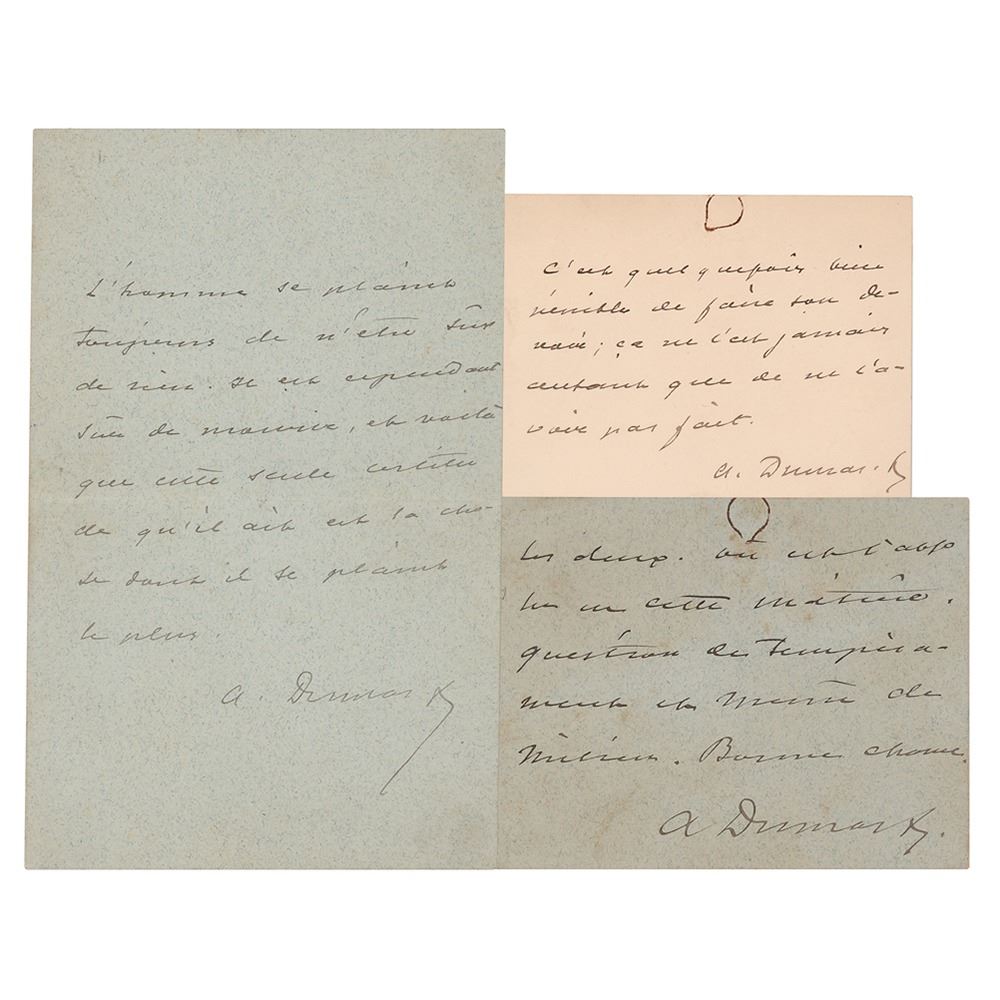 L'homme se plaint
toujours de n'être sûr
de rien. Il est cependant
sûr de mourir, et voilà
que cette seule certitu
de qu'il ait est la cho-
se dont il se plaint
le plus.
A. Dumas f
C'est quelquefois bien
pénible de faire son de-
voir; ça ne l'est jamais
autant que de ne l'a-
voir pas fait.
A. Dumas. f
les deux. Où est l'abso
lu en cette matière.
question de tempéra-
ment et même de
milieu. Bonne chance.
A Dumas f.